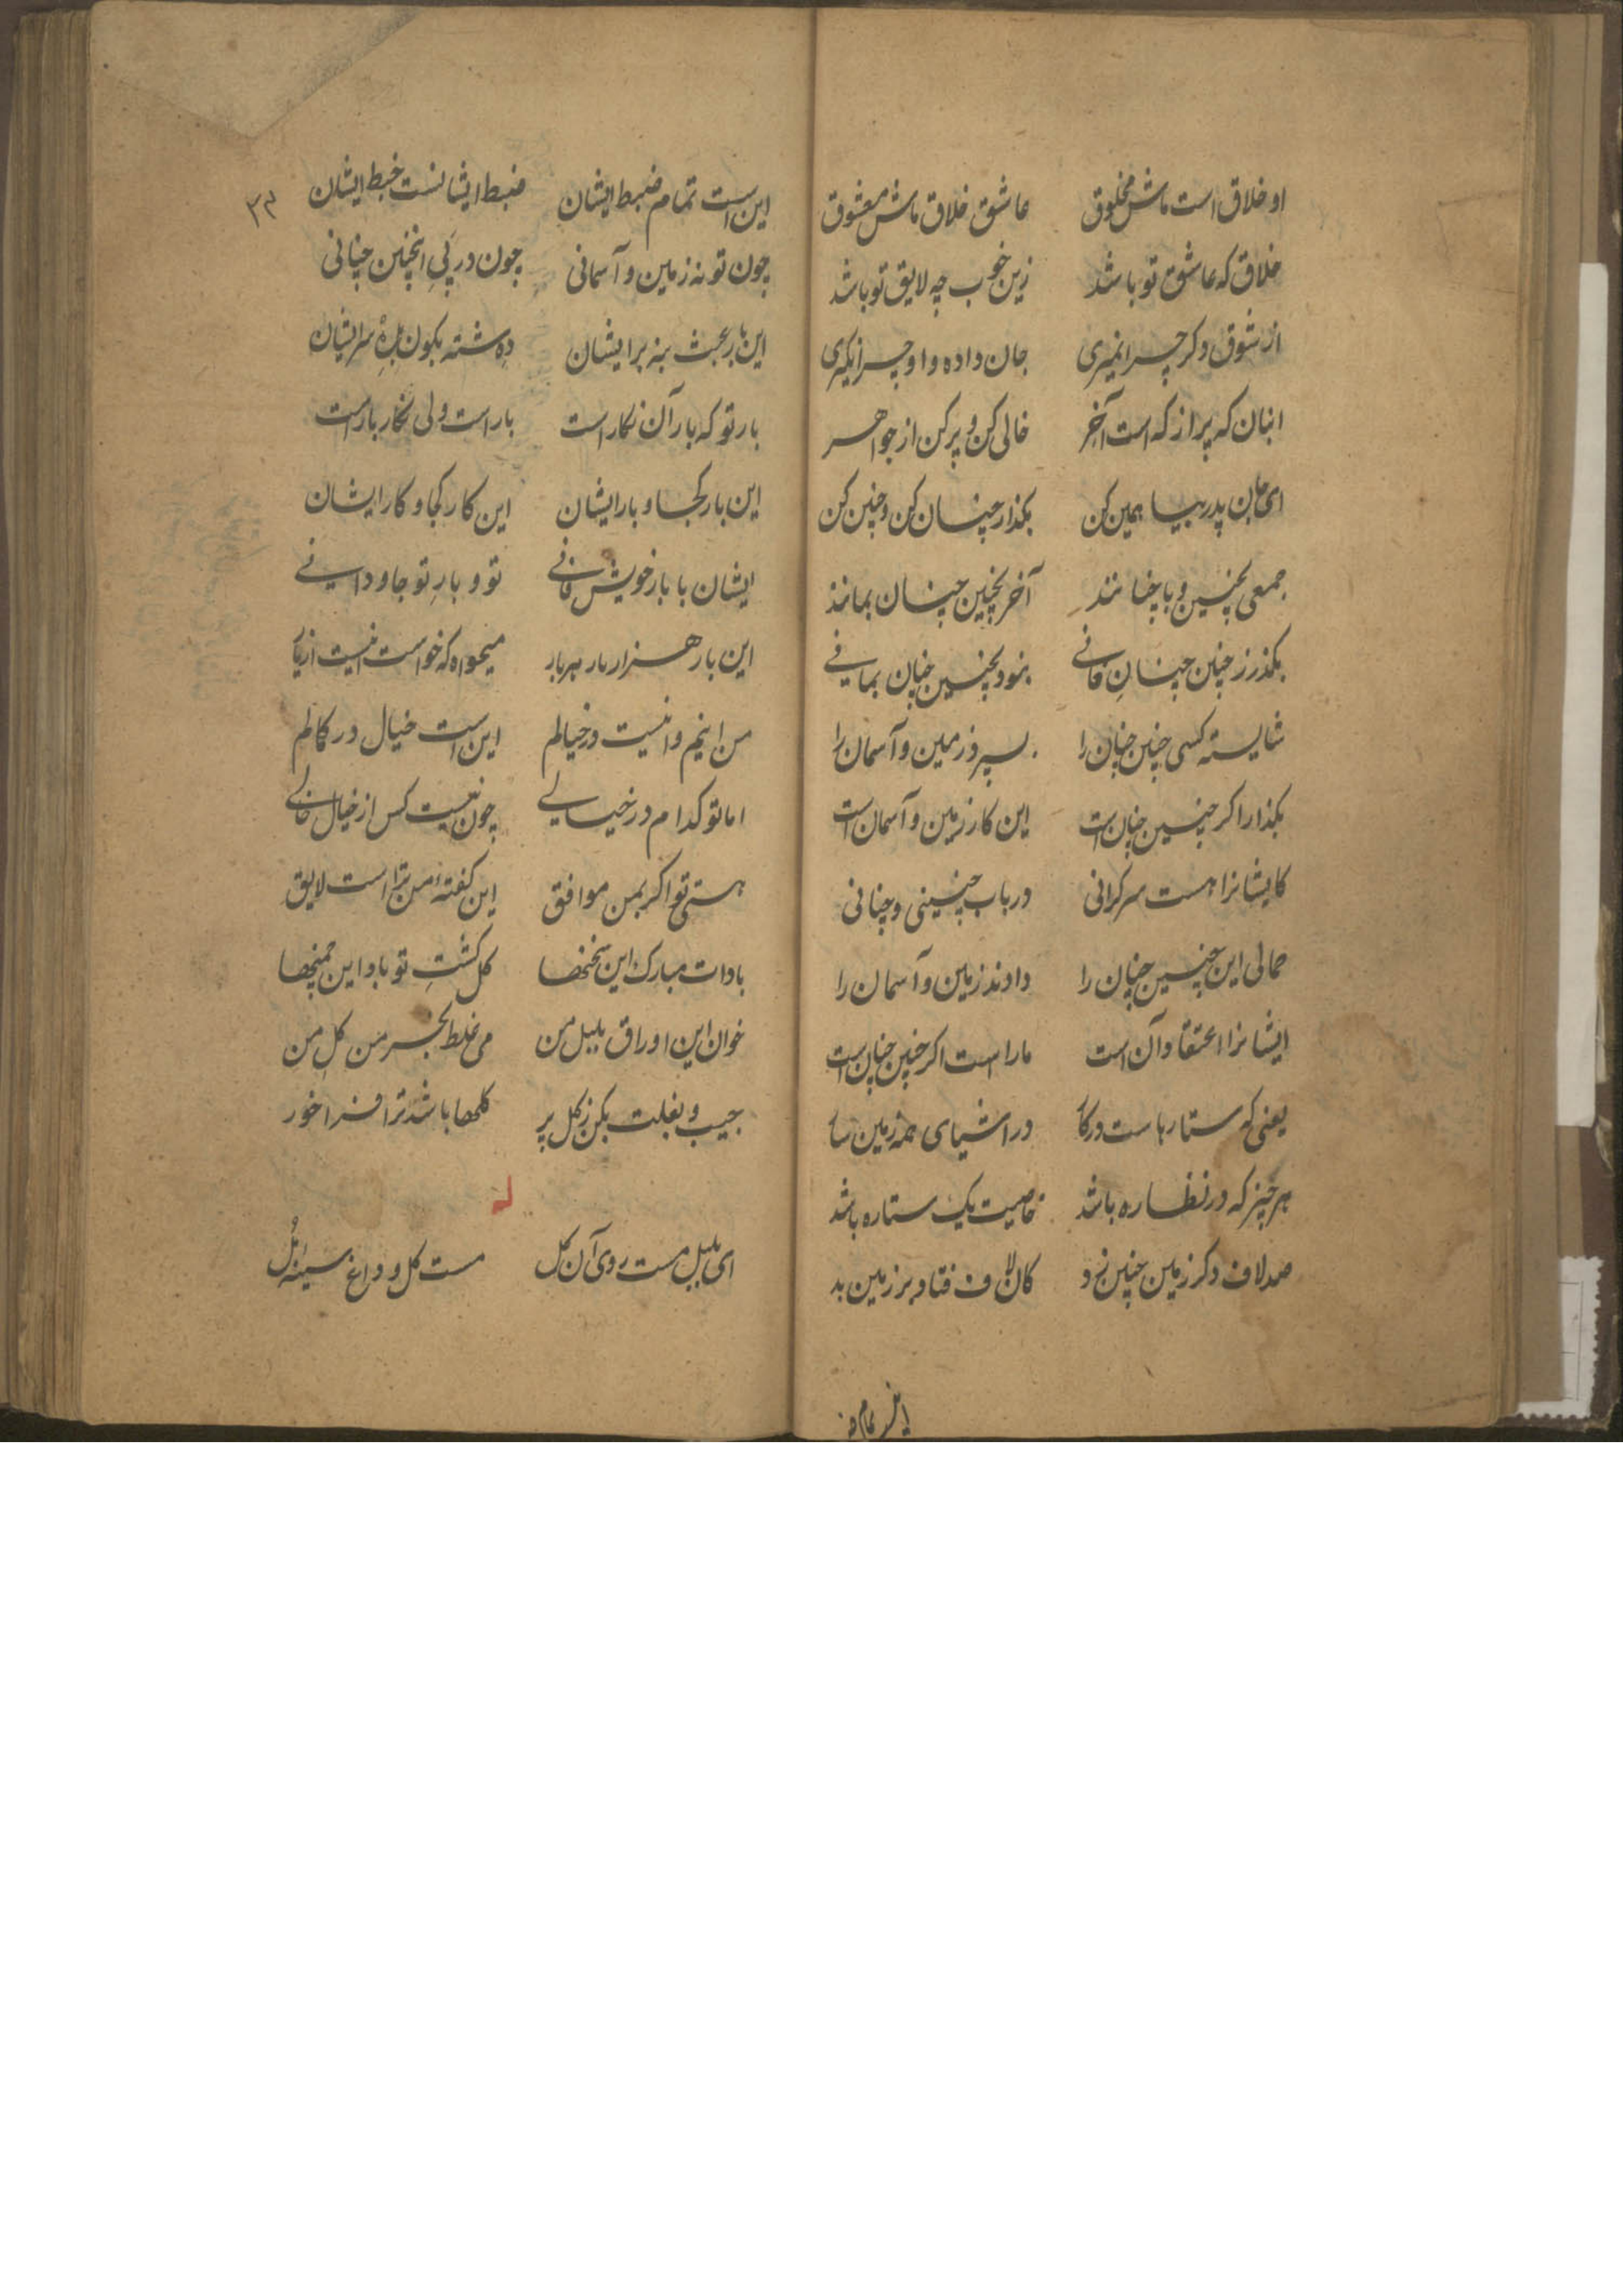 او خلاق است ماش مخلوق عاشق خلاق ماش معشوق
خلاق که عاشق تو باشد زین خوب چه لایق تو باشد
از شوق دکر چرا نمیری جان داده و او چرا نکیری
انبان که پر از که است آخر خالی کن و پر کن از جواهر
ای جان پدر بیا همین کن بکذار چنان کن و چنین کن
جمعی بچنین و با چنانند آخر بچنین چنان بمانند
بکذر ز چنین چنانِ فانی بچنین چنان بمانی
شایسته کسی چنین چنان را بسپرد زمین و آسمان را
بکذار اکر چنین چنان است این کار زمین و آسمان است
کایشانرا هست سرکرانی در باب چنینی و چنانی
حمالی این چنین چنان را دادند زمین و آسمان را
ایشانرا اعتقاد آن است ما را است اکر چنین چنان است
یعنی که ستارهاست در کار در اشیای همه زمین سار
هر چیز که در نظاره باشد خاصیت یک ستاره باشد
صد لاف دکر زمین چنین زد کان لاف فتاد بر زمین بد
این است تمام ض
۳۳
این است تمام ضبط ایشان ضبط ایشانست خبط ایشان
چون تو نه زمین و آسمانی چون در پیِ اینچنین چنانی
این بار عبث بنه بر ایشان دِه شته بکون سر ایشان
بار تو که بار آن نکار است بار است ولی نکار بار است
این بار کجا و بار ایشان این کار کجا و کار ایشان
ایشان با بار خویش فانی تو و بارِ تو جاودانی
این بار هزار بار بهر بار میخواه که خواست نیست ازین بار
من اینم و اینست در خیالم این است خیال در کمالم
اما تو کدام در خیالی چون نیست کس از خیال خالی
هستی تو اکر بمن موافق این کفتهٔ من تراست لایق
بادات مبارک این سخنها کل کشتِ تو باد این چمنها
خوان این اوراق بلبل من می غلط بخرمن کلِ من
جیب و بغلت بکن ز کل پر کلها باشد ترا فراخور
له
ای بلبل مست روی آن کل مست کل و داغ سینهٔ مُل